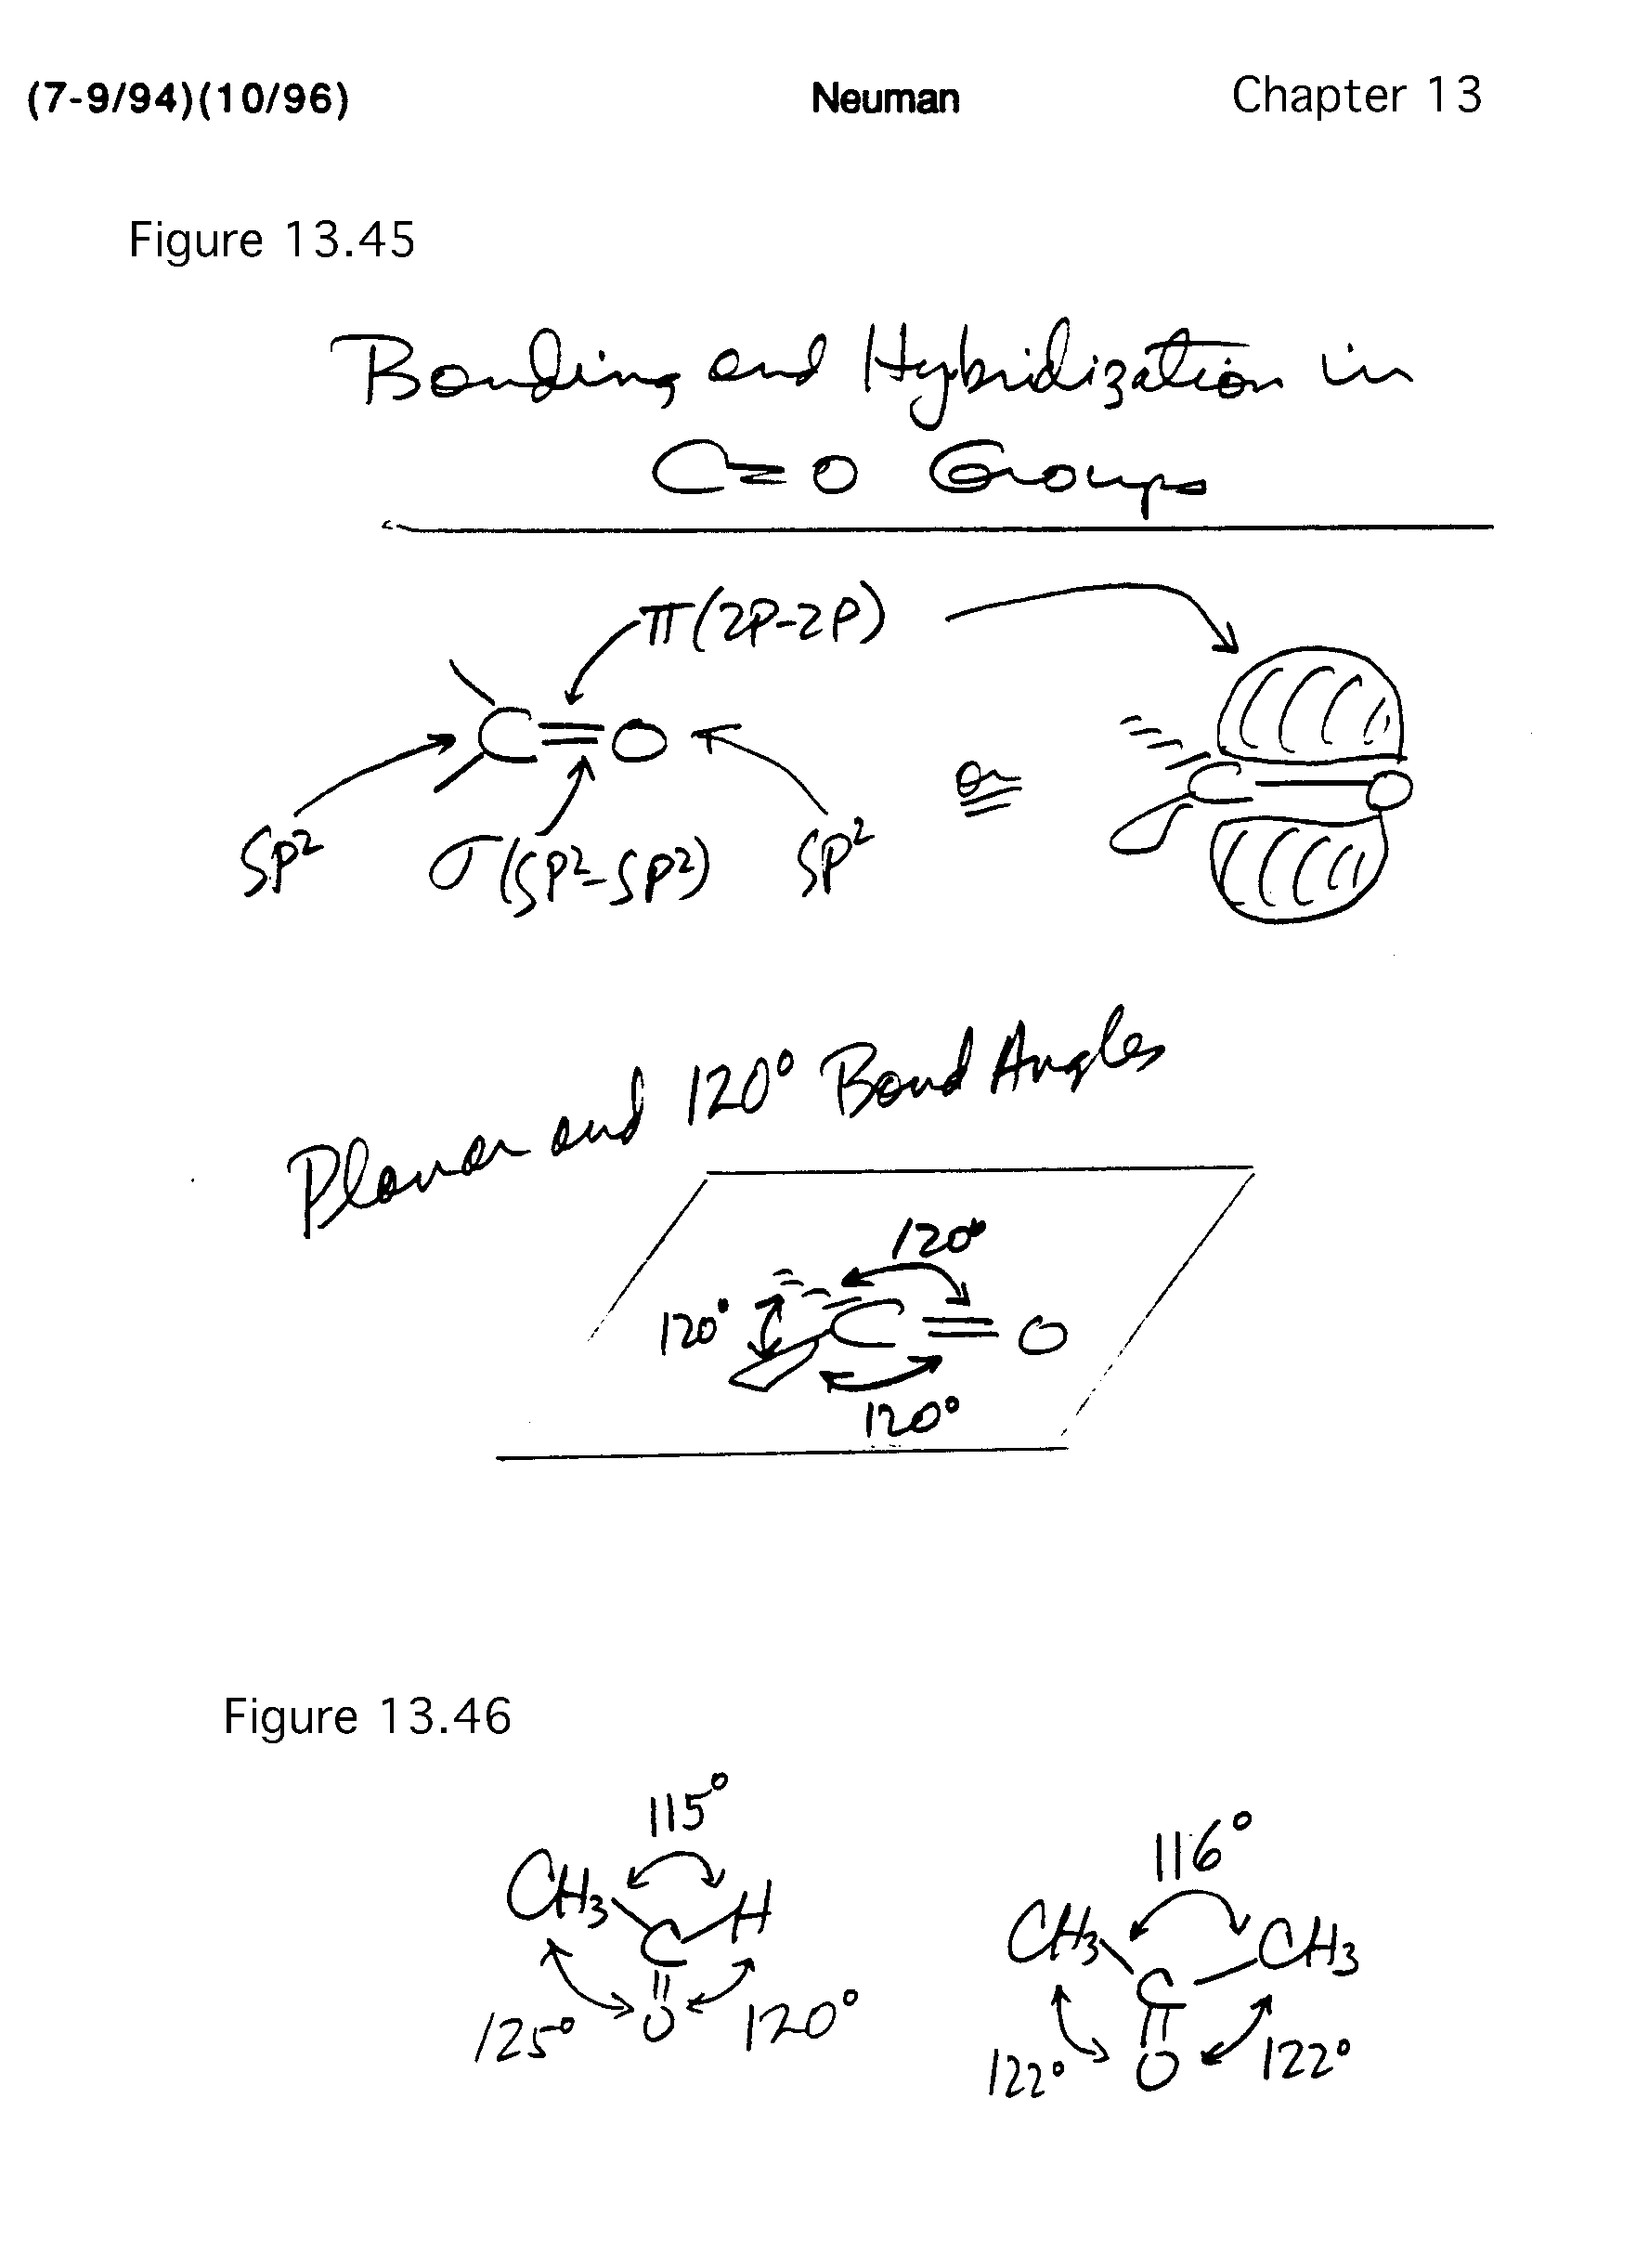 (7-9/94)(10/96) Neuman Chapter 13
Figure 13.45
Bonding and Hybridization in
C=O Groups
π(2P-2P)
C=O
or
C O
SP² σ(SP²-SP²) SP²
Planar and 120° Bond Angles
120°
120° C=O
120°
Figure 13.46
115° 116°
CH₃ H CH₃ CH₃
C C
O O
125° 120° 122° 122°